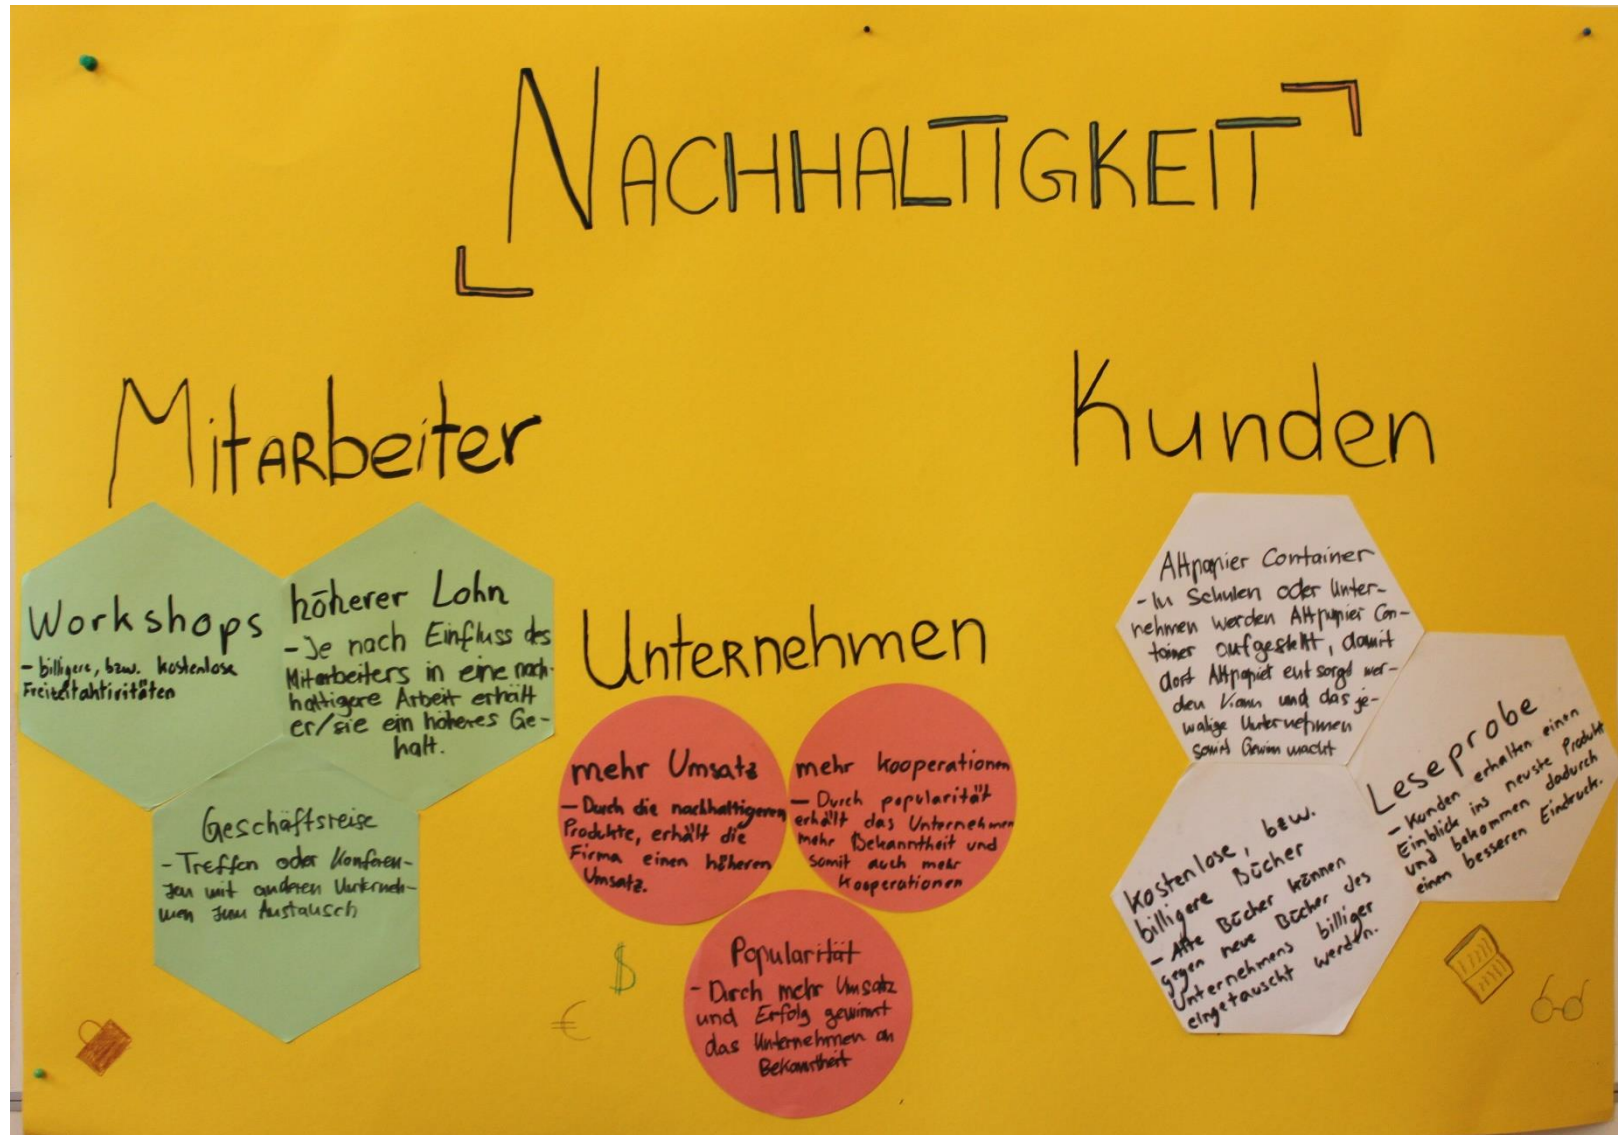 NACHHALTIGKEIT
Mitarbeiter
Workshops
- billigere, bzw. kostenlose
Freizeitaktivitäten
höherer Lohn
- Je nach Einfluss des
Mitarbeiters in eine nach-
haltigere Arbeit erhält
er/sie ein höheres Ge-
halt.
Geschäftsreise
- Treffen oder Konferen-
zen mit anderen Unterneh-
men zum Austausch
Unternehmen
mehr Umsatz
- Durch die nachhaltigeren
Produkte, erhält die
Firma einen höheren
Umsatz.
mehr Kooperationen
- Durch popularität
erhält das Unternehmen
mehr Bekanntheit und
somit auch mehr
Kooperationen
Popularität
- Durch mehr Umsatz
und Erfolg gewinnt
das Unternehmen an
Bekanntheit
$
€
Kunden
Altpapier Container
- In Schulen oder Unter-
nehmen werden Altpapier Con-
tainer aufgestellt, damit
dort Altpapier entsorgt wer-
den kann und das je-
walige Unternehmen
somit Gewinn macht
Leseprobe
- Kunden erhalten einen
Einblick ins neuste Produkt
und bekommen dadurch
einen besseren Eindruck.
kostenlose, bzw.
billigere Bücher
- Alte Bücher können
gegen neue Bücher des
Unternehmens billiger
eingetauscht werden.